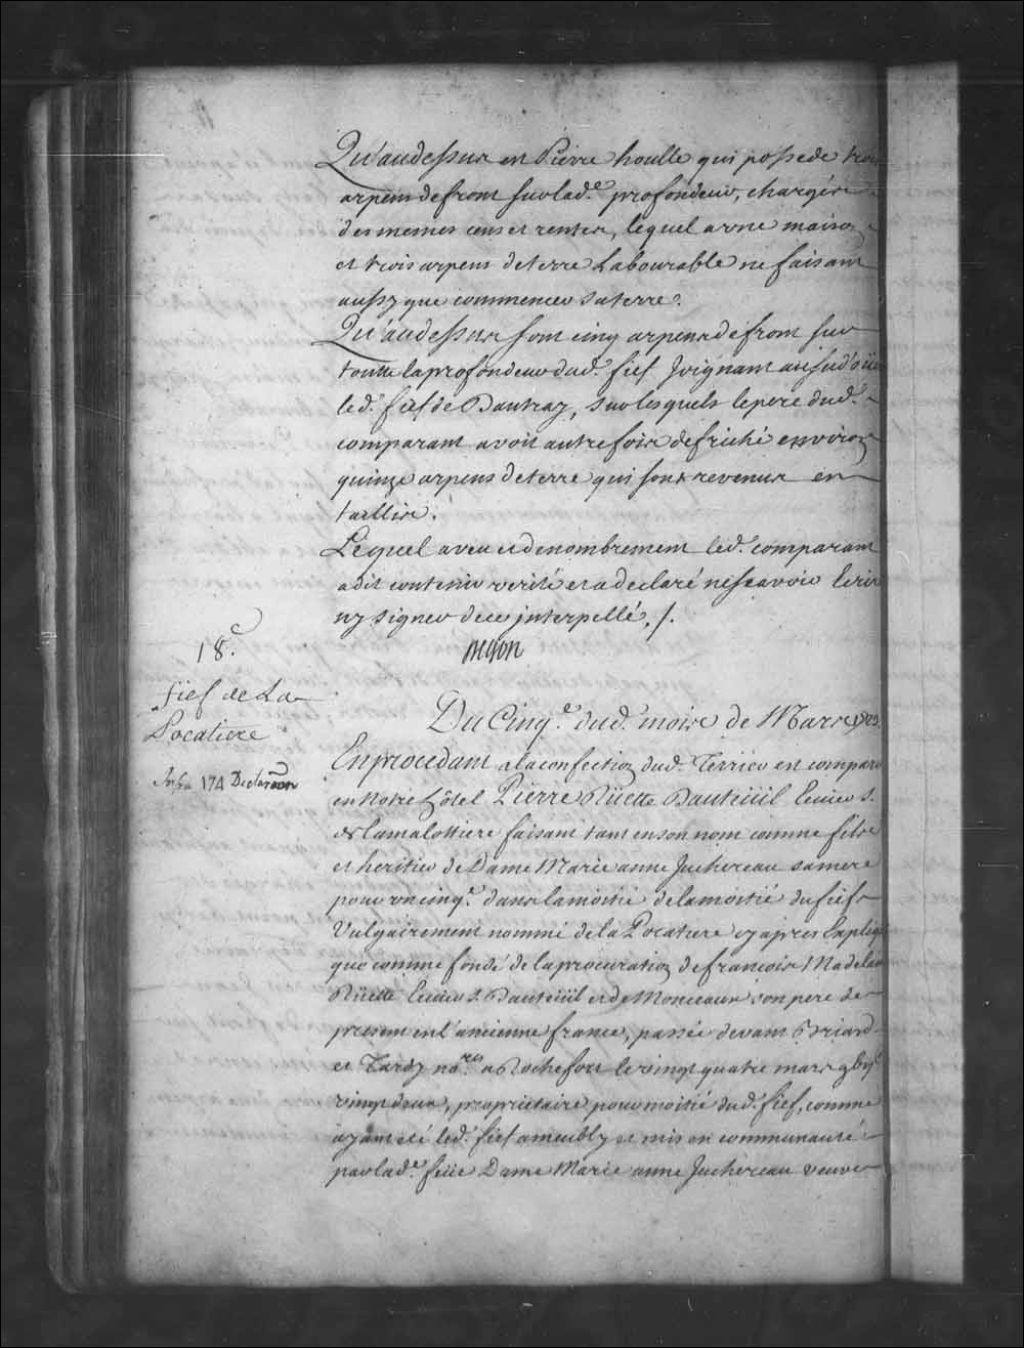 Qu'audessus en Pierre houlle qui possede trois
arpens de front sur lad.e profondeur, chargés
des memes cens et rentes, lequel a vne maison
et trois arpens de terre Labourable ne faisant
aussy que commencer sa terre.
Qu'audessus sont cinq arpens de front sur
toutte la profondeur dud. fief Joignant au sud'oüe
led. fief de Dautray, sur lesquels le pere dud.
comparant avoit autrefois defriché environ
quinze arpens de terre qui sont revenus en
taillis.
Lequel aveu et denombrement led. comparant
a dit contenir verité et a declaré ne scavoir Ecrire
ny signer de ce jnterpellé, /.
18.e
fief de La
Pocatiere
174 Declaraon
Du Cinq.e dud. mois de Mars
En procedant a la confection dud. Terrier est comparu
en Notre hôtel Pierre Rüette Dauteüil Ecuier s.
de la malottiere faisant tant en son nom comme fils
et heritier de Dame Marie anne Juchereau sa mere
pour vn cinq.e dans la moitié de la moitié du fief
Vulgairement nommé de la Pocatiere cy apres Expliqué
que comme fondé de la procuration de francois Madelaine
Rüette Ecuier s. Dauteüil et de Monceaux son pere de
present en l'ancienne france, passée devant Briard
et Tardy no.res a Rochefort le vingt quatre mars
vingt deux, proprietaire pour moitié dud. fief, comme
ayant eté led. fief ameubly et mis en communauté
par lad.e feüe Dame Marie anne Juchereau veuve